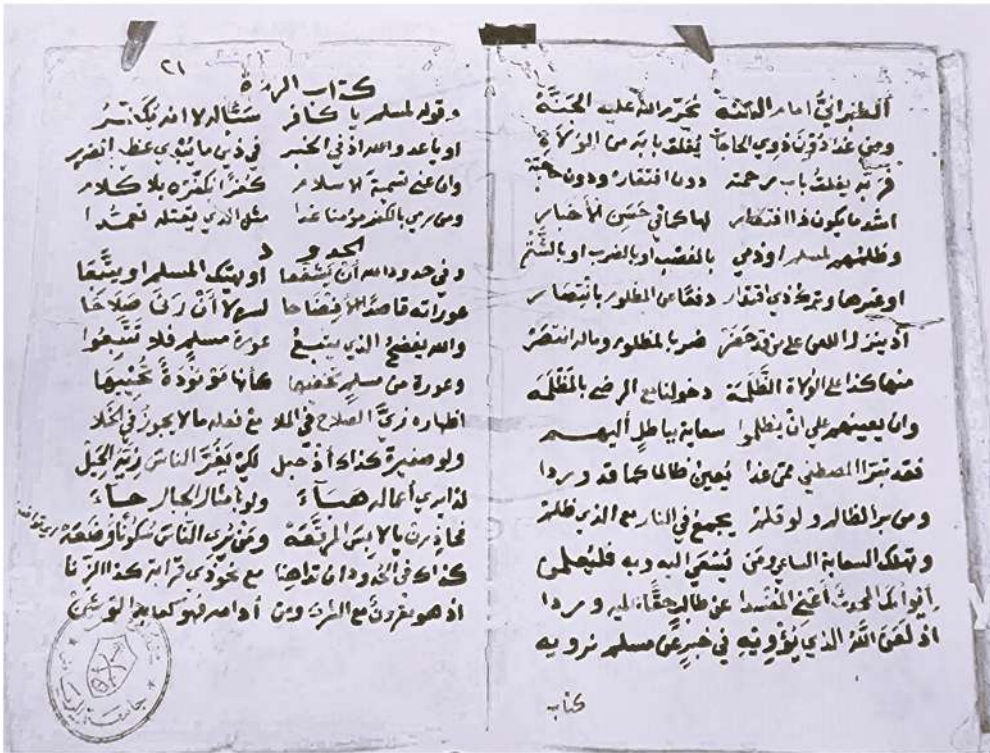 الطبراني امام النقشة تحرم الله عليه الجنة
ومن غدا دون ذوي الحاجات يغلق بابه من الولاة
فربه يغلق باب رحمته دون افتقاره ودون حاجته
اشد ما يكون ذا افتقار لها كما في حسن الأخبار
وظلمهم لمسلم او ذمي بالغصب او بالضرب او بالشتم
او غيرها وترك ذي اقتدار دفعا عن المظلوم بانتصار
اذ ينزل اللعن على من قد حضر ضربا لمظلوم وما له انتصر
منها كذا على الولاة الظلمة دخولنا مع الرضى بالمظلمه
وان يعينهم على ان يظلموا سعاية بباطل اليهم
فقد تبرا المصطفى ممن غدا يعين ظالما كما قد وردا
ومن برا لظالم ولو قلم يجمع في النار مع الذي ظلم
وتهلك السعاية الساعي ومن يسعى اليه وبه فليعلمن
المحدث أعني المفسدا عن طالب حقا عليه وردا
اذ لعن الله الذي يؤويه في خبر عن مسلم نرويه
كتاب
٢١
كتاب الردة
وقوله لمسلم يا كافر لا الله يكفر
او يا عدو الله اذ في الخبر في ذين ما ينبي عظيم الضرر
وان عنى تسمية الاسلام كفرا بكفره بلا كلام
ومن رمي بالكفر مؤمنا غدا مثل الذي يقتله تعمدا
الحدود
وفي حدود الله أن يشفعا او يهتك المسلم او يتبعا
عوراته قاصدا الافضاحا لسره لا أن رأى صلاحا
والله يفضح الذي يتبع عورة مسلم فلا تتبعوا
وعورة من مسلم تخفيها كأنها موؤدة تحييها
اظهاره زي الصلاح في الملا مع فعله ما لا يجوز في الخلا
ولو صغيرة كذاك أذ حبل لكن يغر الناس زينة الحبل
لذا يرى أعماله هباء ولو بأمثال الجبال جاء
فحاذرن يا لابس المرقعة ومن يري الناس سكونا وضعه
كذاك في الحدود ان تداهنا مع نحو ذي قرابة كذا الزنا
اذ هو مقرون مع الشرك ومن أدامه فهو كعابد الوثن